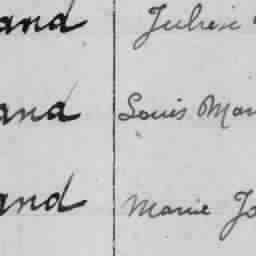 and Julien
and Louis Mar
and Marie Jo